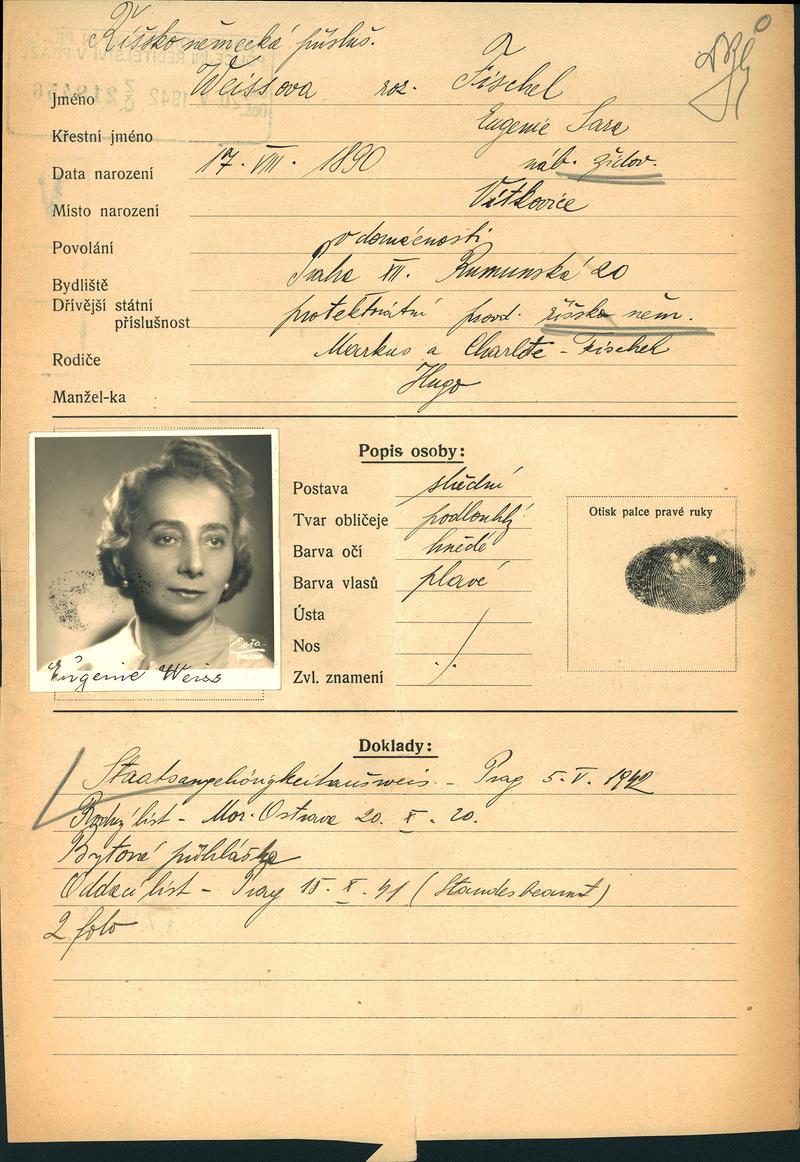 Říšsko německá přísluš.
Jméno Weissova roz. Fischel
Křestní jméno Eugenie Sara
Data narození 17. VIII. 1890 náb. židov.
Místo narození Vítkovice
Povolání v domácnosti
Bydliště Praha XII. Rumunská 20
Dřívější státní
příslušnost protektorátní pravd. říšsko něm.
Rodiče Markus a Charlote - Fischel
Manžel-ka Hugo
Popis osoby:
Postava střední
Tvar obličeje podlouhlý
Barva očí hnědé
Barva vlasů plavé
Ústa
Nos
Zvl. znamení
Otisk palce pravé ruky
Eugenie Weiss
Doklady:
Staatsangehörigkeitausweis - Prag 5. V. 1942
Rodný list - Mor. Ostrava 20. X. 20.
Bytové přihláška
Oddací list - Prag 15. X. 41 (Standesbeamt)
2 foto